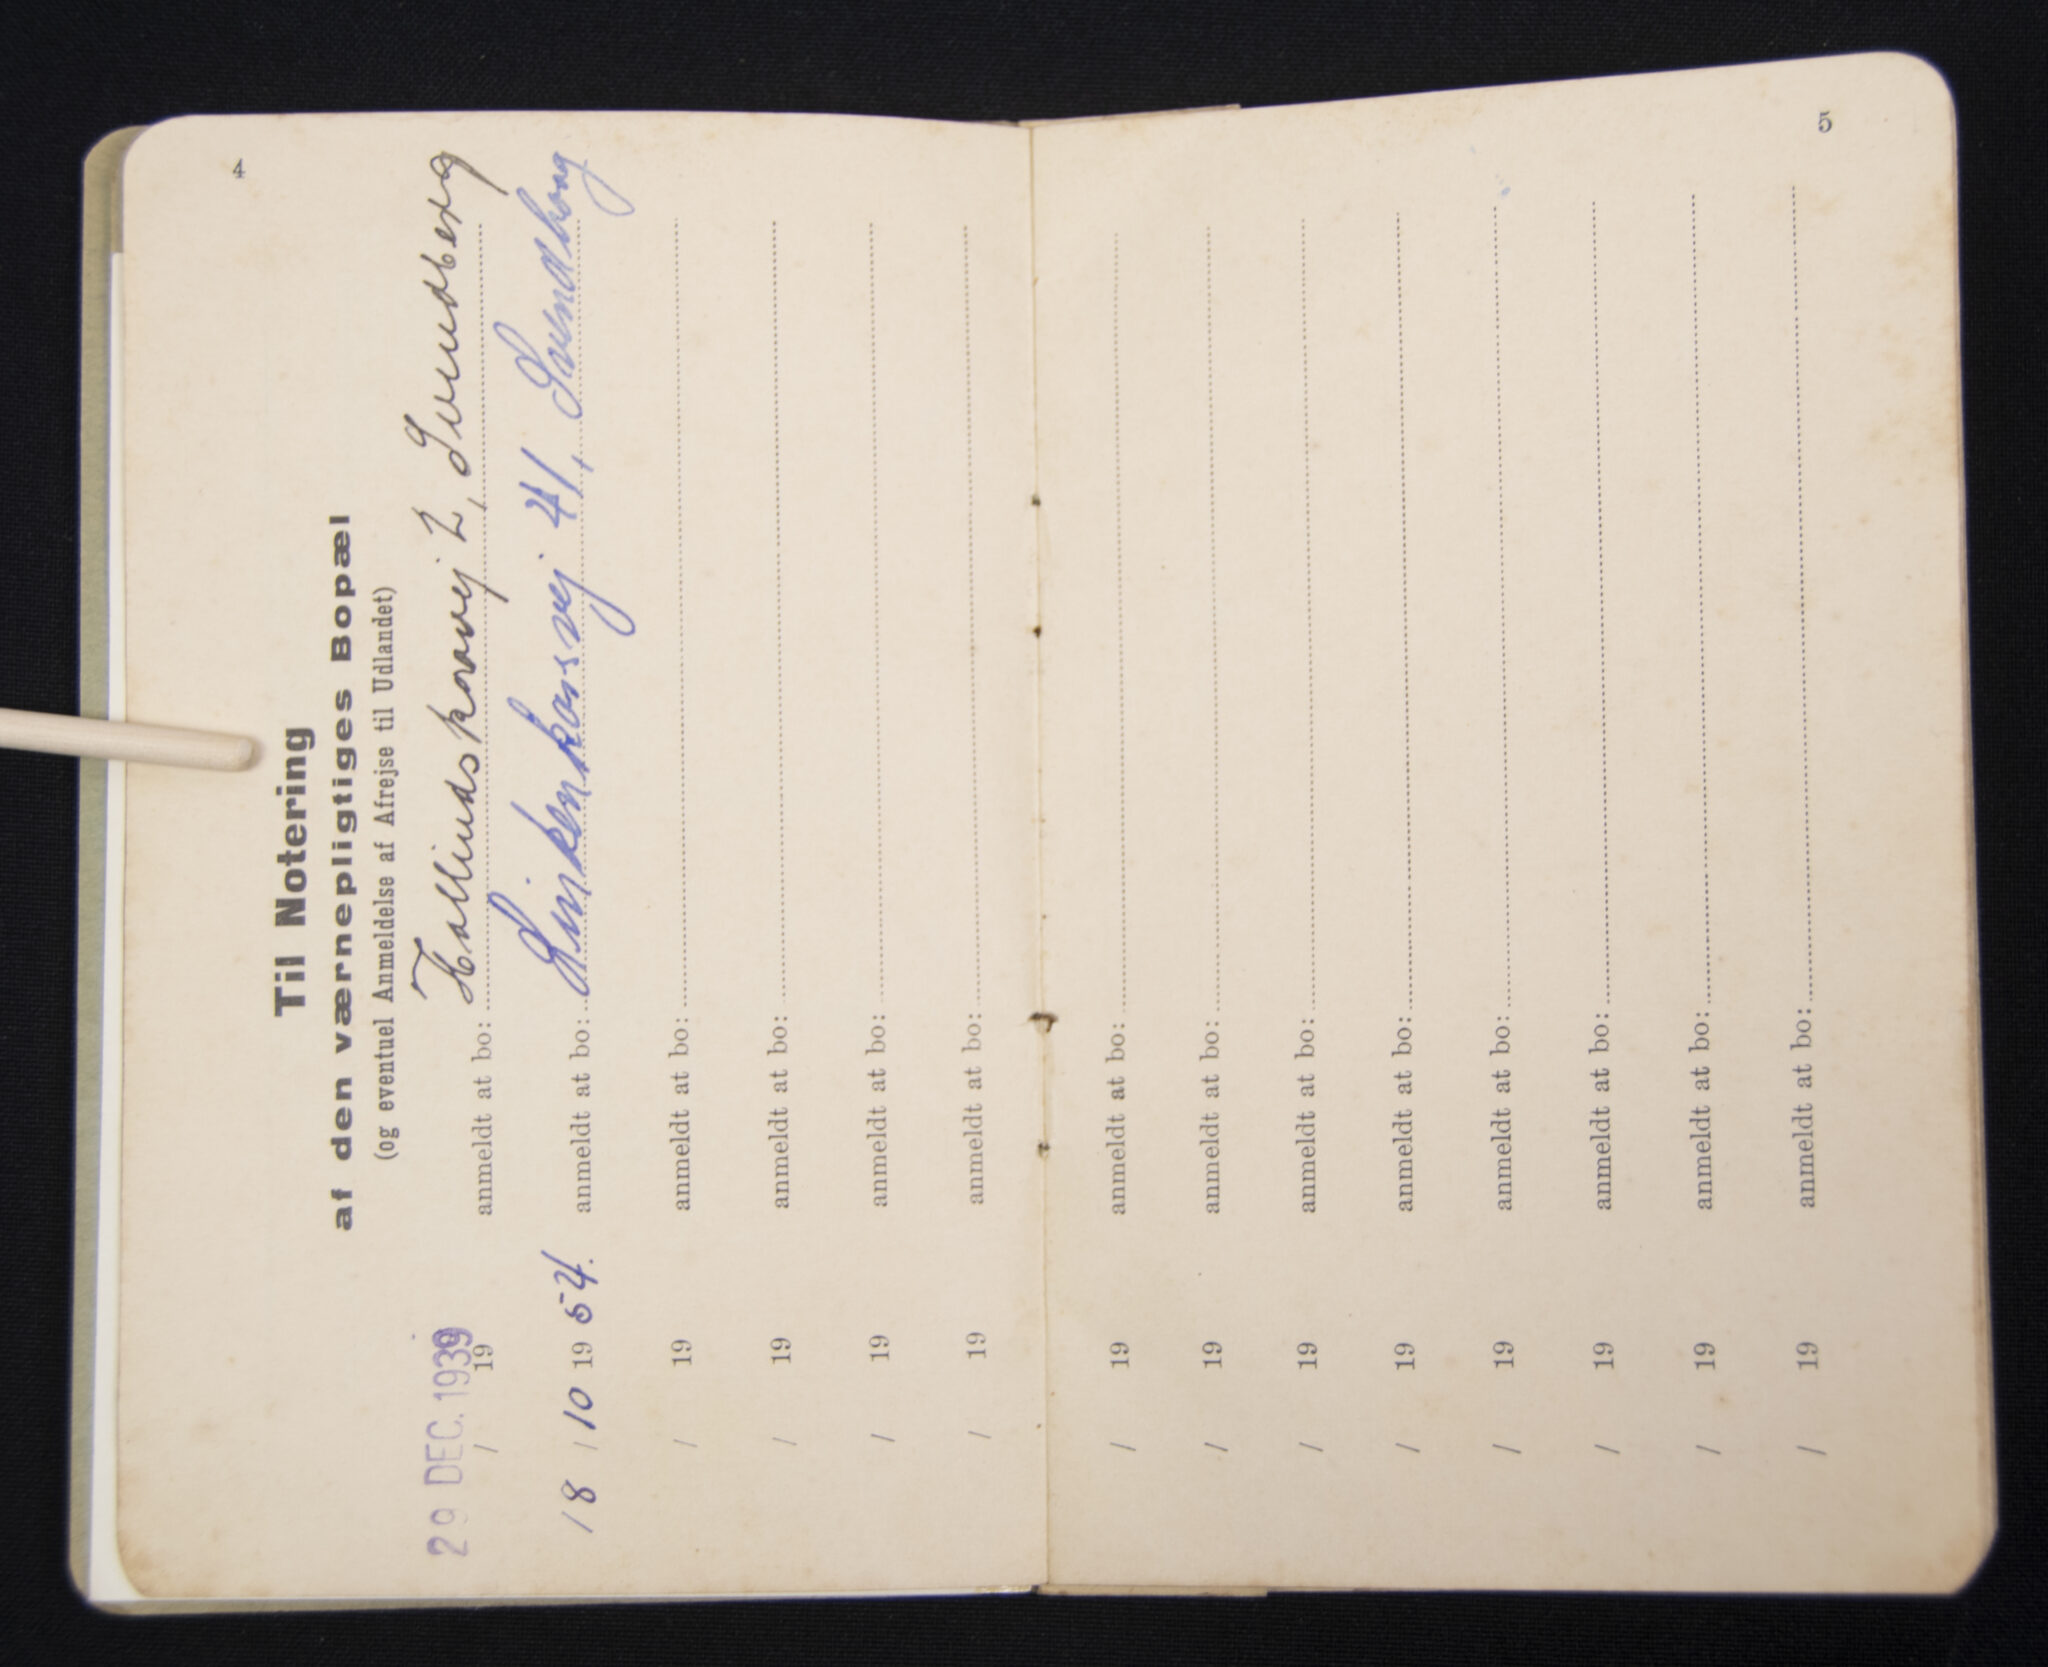 4
Til Notering
af den værnepligtiges Bopæl
(og eventuel Anmeldelse af Afrejse til Udlandet)
29 DEC. 1939 / 19 anmeldt at bo: Hallindskovvej 2, Svendborg
18 / 10 19 54. anmeldt at bo: Linkenkærsvej 41, Svendborg
/ 19 anmeldt at bo:
/ 19 anmeldt at bo:
/ 19 anmeldt at bo:
/ 19 anmeldt at bo:
5
/ 19 anmeldt at bo:
/ 19 anmeldt at bo:
/ 19 anmeldt at bo:
/ 19 anmeldt at bo:
/ 19 anmeldt at bo:
/ 19 anmeldt at bo:
/ 19 anmeldt at bo:
/ 19 anmeldt at bo: